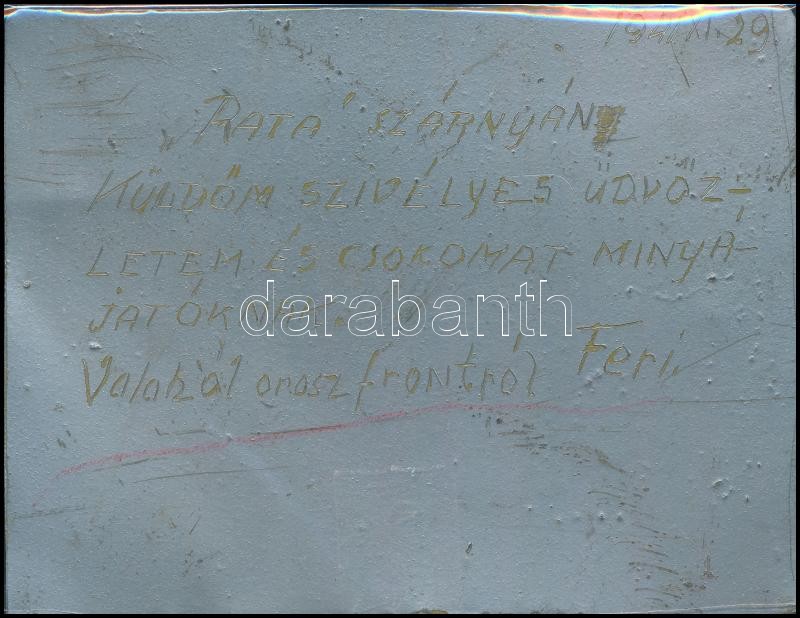 1941 XI. 29
„RATA" SZÁRNYÁN
KÜLDÖM SZIVÉLYES ÜDVÖZ-
LETEM ÉS CSOKOMAT MINYÁ-
JATÓKNAK.
Valahól orosz frontról Feri
darabanth